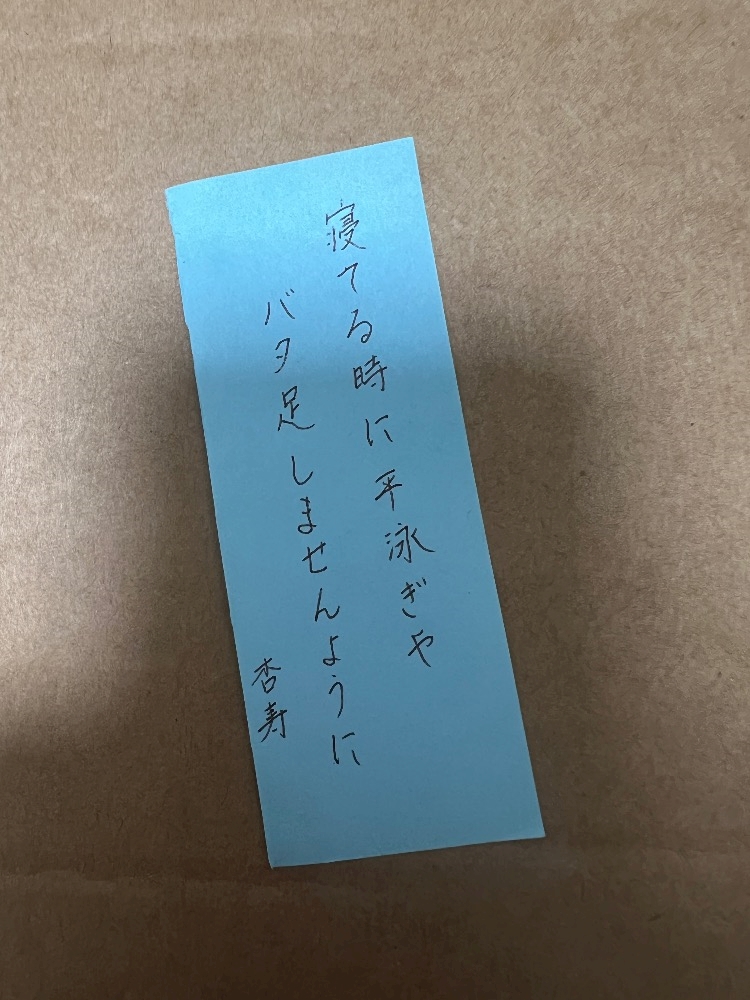 寝てる時に平泳ぎや
バタ足しませんように
杏寿